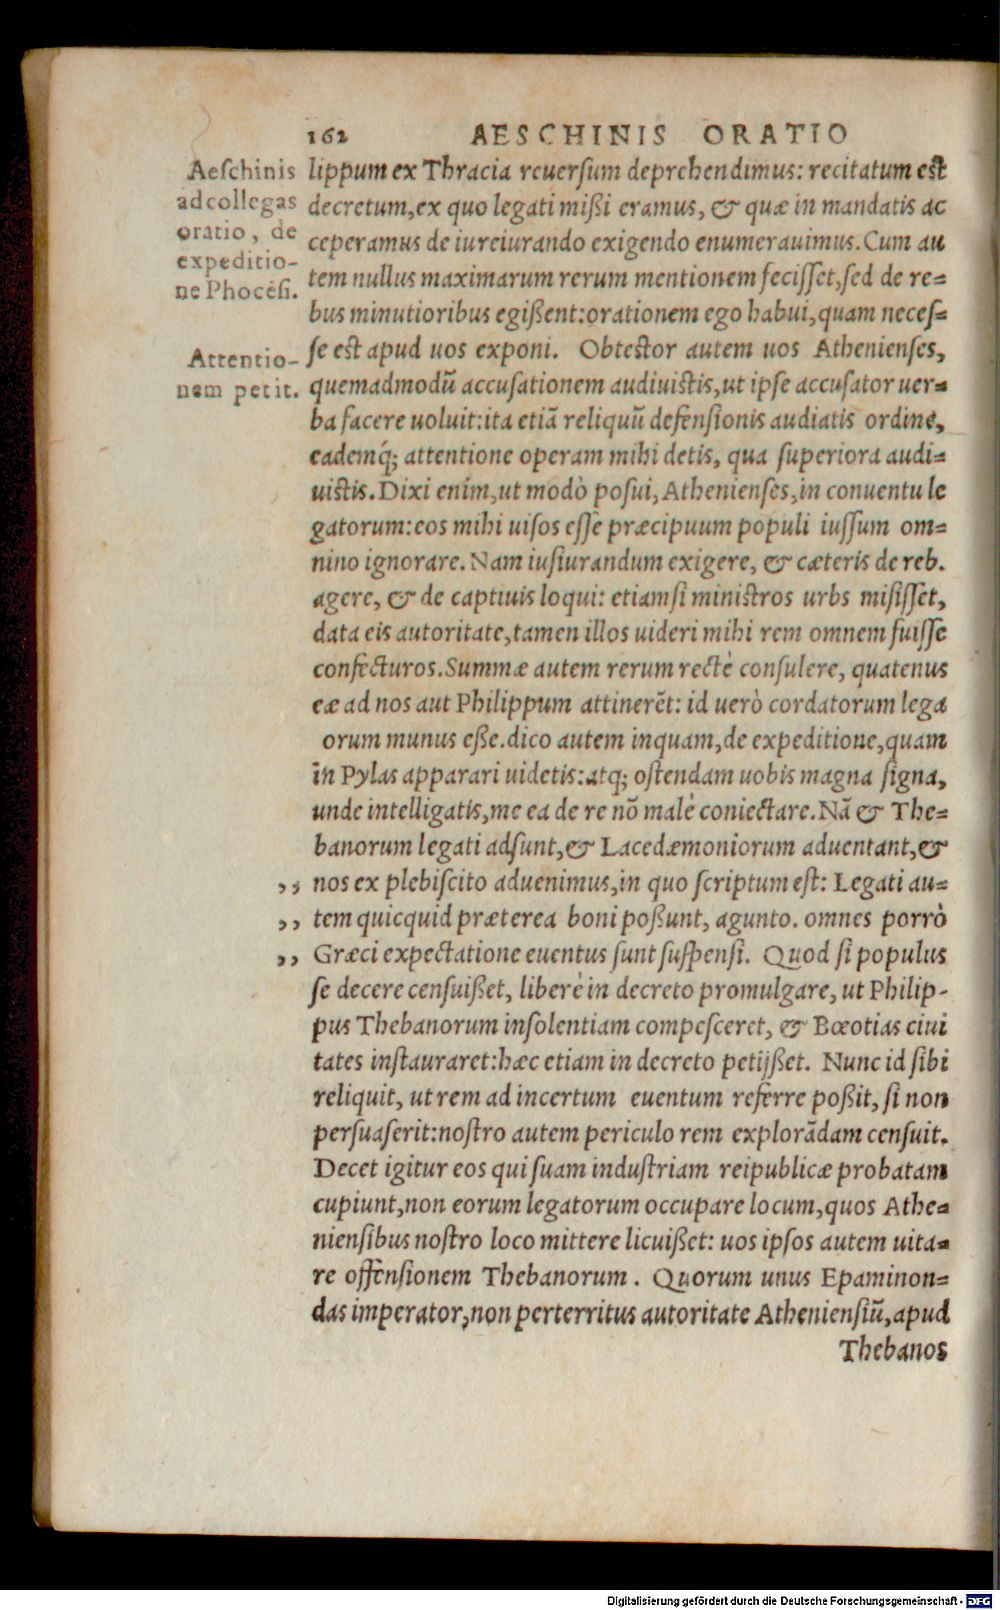 162 AESCHINIS ORATIO
Aeschinis
ad collegas
oratio, de
expeditio-
ne Phocēsi.
Attentio-
nem petit.
lippum ex Thracia reuersum deprehendimus: recitatum est
decretum, ex quo legati mißi eramus, & quæ in mandatis ac
ceperamus de iureiurando exigendo enumerauimus. Cum au
tem nullus maximarum rerum mentionem fecisset, sed de re=
bus minutioribus egißent: orationem ego habui, quam neces=
se est apud uos exponi. Obtestor autem uos Athenienses,
quemadmodū accusationem audiuistis, ut ipse accusator uer=
ba facere uoluit: ita etiā reliquū defensionis audiatis ordine,
eademq́; attentione operam mihi detis, qua superiora audi=
uistis. Dixi enim, ut modò posui, Athenienses, in conuentu le
gatorum: eos mihi uisos esse præcipuum populi iussum om=
nino ignorare. Nam iusiurandum exigere, & cæteris de reb.
agere, & de captiuis loqui: etiamsi ministros urbs misisset,
data eis autoritate, tamen illos uideri mihi rem omnem fuisse
confecturos. Summæ autem rerum rectè consulere, quatenus
eæ ad nos aut Philippum attinerēt: id uerò cordatorum lega
orum munus eße. dico autem inquam, de expeditione, quam
in Pylas apparari uidetis: atq; ostendam uobis magna signa,
unde intelligatis, me ea de re nō malè coniectare. Nā & The=
banorum legati adsunt, & Lacedæmoniorum aduentant, &
,, nos ex plebiscito aduenimus, in quo scriptum est: Legati au=
,, tem quicquid præterea boni poßunt, agunto. omnes porrò
,, Græci expectatione euentus sunt suspensi. Quod si populus
se decere censuißet, liberè in decreto promulgare, ut Philip-
pus Thebanorum insolentiam compesceret, & Bœotias ciui
tates instauraret: hæc etiam in decreto petijßet. Nunc id sibi
reliquit, ut rem ad incertum euentum referre poßit, si non
persuaserit: nostro autem periculo rem explorādam censuit.
Decet igitur eos qui suam industriam reipublicæ probatam
cupiunt, non eorum legatorum occupare locum, quos Athe=
niensibus nostro loco mittere licuißet: uos ipsos autem uita=
re offensionem Thebanorum. Quorum unus Epaminon=
das imperator, non perterritus autoritate Atheniensiū, apud
Thebanos
Digitalisierung gefördert durch die Deutsche Forschungsgemeinschaft - DFG